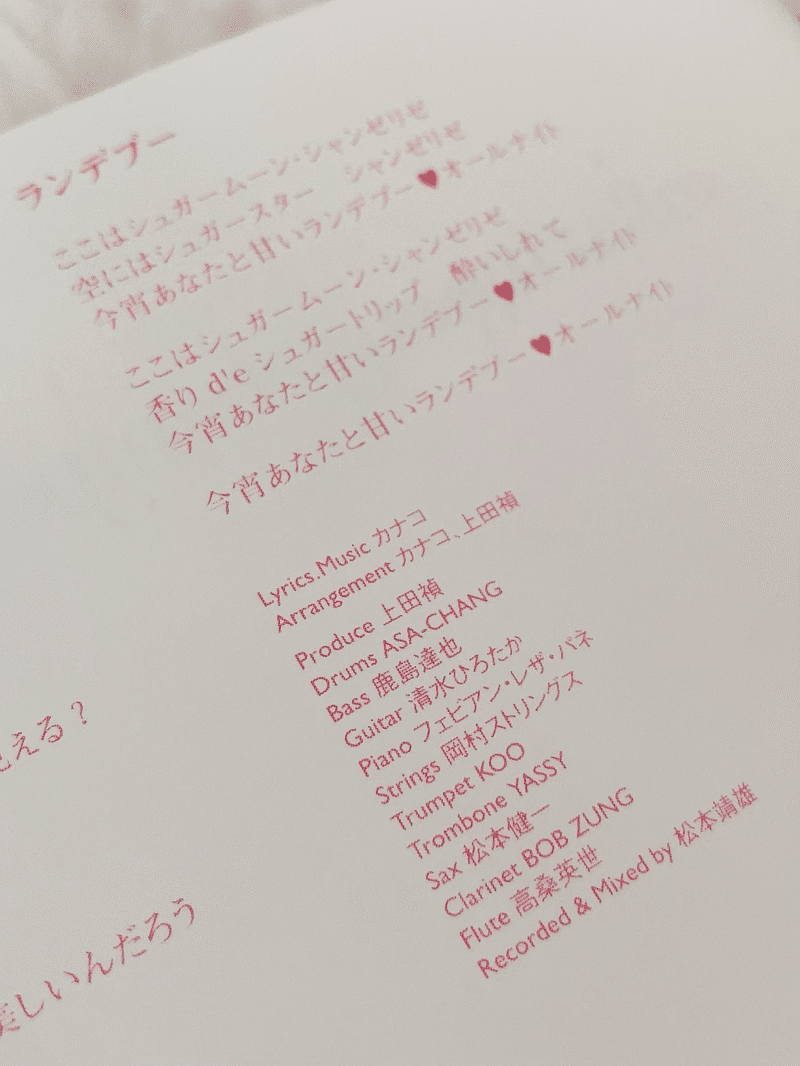 ランデブー
ここはシュガームーン・シャンゼリゼ
空にはシュガースター　シャンゼリゼ
今宵あなたと甘いランデブー♥オールナイト
ここはシュガームーン・シャンゼリゼ
香り d'e シュガートリップ　酔いしれて
今宵あなたと甘いランデブー♥オールナイト
今宵あなたと甘いランデブー♥オールナイト
Lyrics.Music カナコ
Arrangement カナコ、上田禎
Produce 上田禎
Drums ASA-CHANG
Bass 鹿島達也
Guitar 清水ひろたか
Piano フェビアン・レザ・パネ
Strings 岡村ストリングス
Trumpet KOO
Trombone YASSY
Sax 松本健一
Clarinet BOB ZUNG
Flute 高桑英世
Recorded & Mixed by 松本靖雄
見える？
美しいんだろう